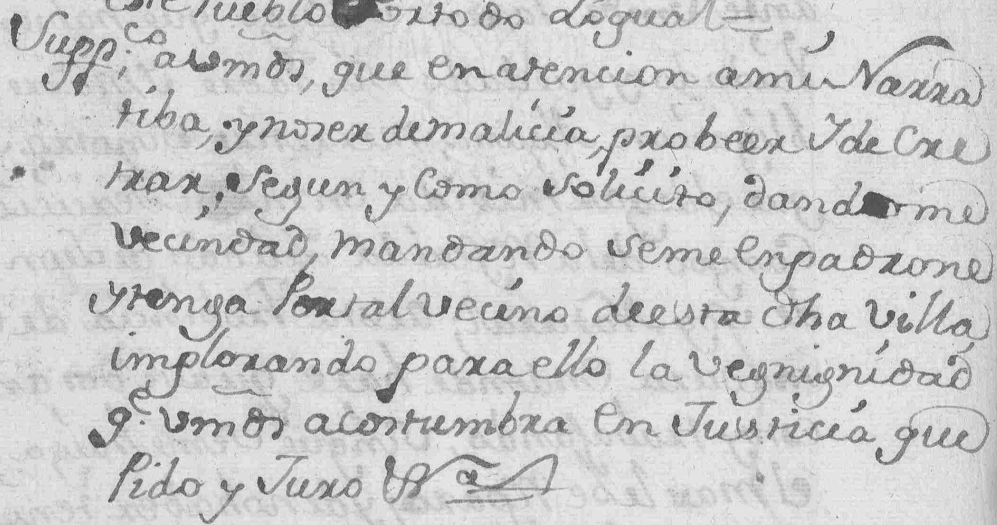 este Pueblo Por todo Lo qual =
Supp.co a vmds, que en atencion a mi Narra
tiba, y no ser de malicia, probeer I de Cre
trar, segun y Como solicito, dandome
vecindad, mandando se me enpadrone
y tenga Por tal vecino de esta dha villa
implorando para ello la vegnignidad
q.e vmds acostumbra En Justicia que
Pido y Juro &a